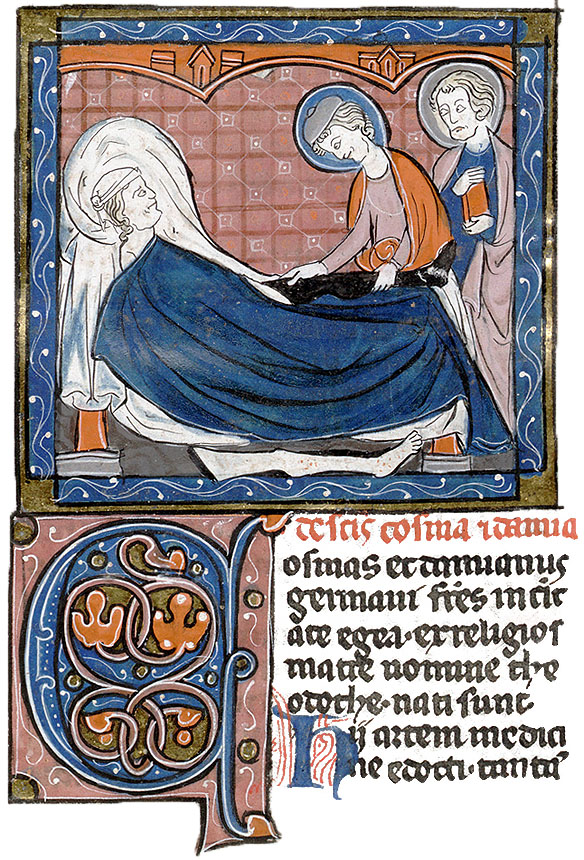 de scis cosma ⁊ damia
Cosmas et damianus
germani fres in ciuit
ate egea · ex religiosa
matre nomine the
odoche · nati sunt
Hii artem medici
ne edocti · tantā